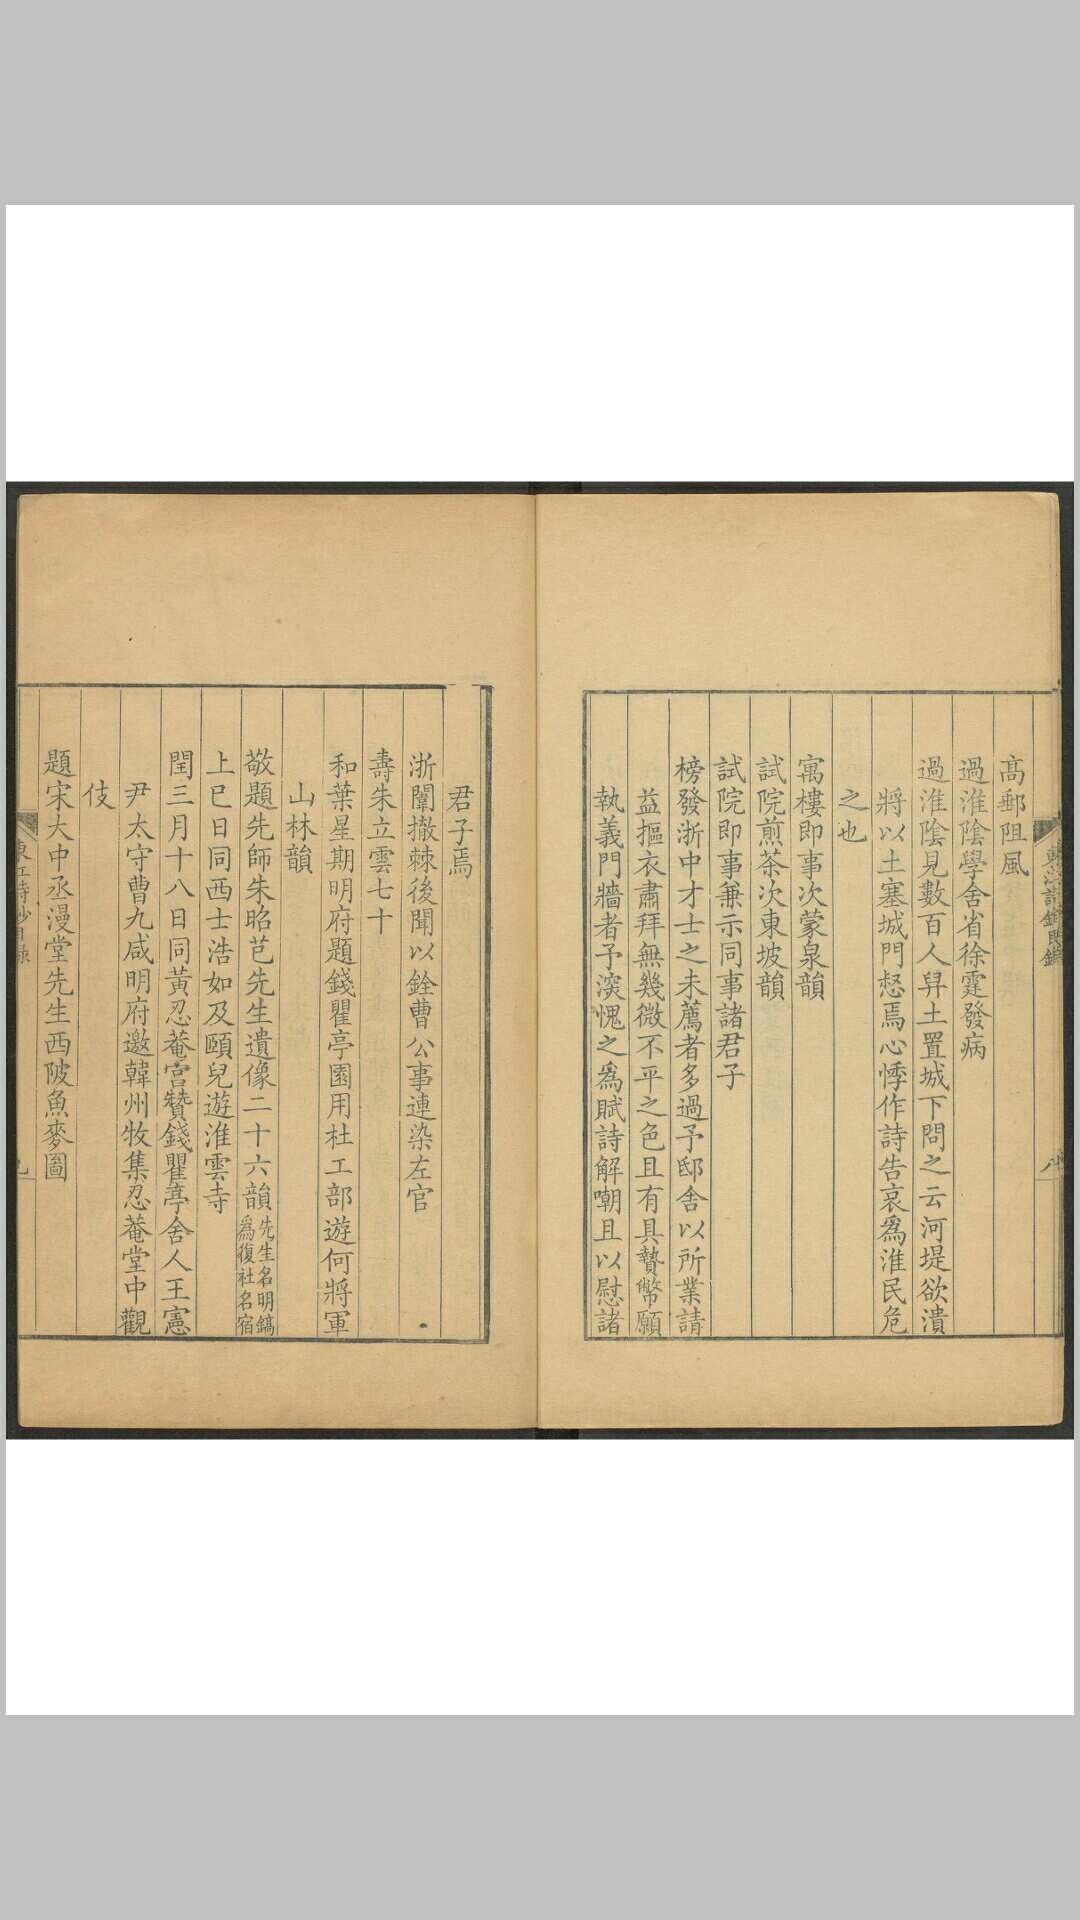 高郵阻風
過淮陰學舍省徐霆發病
過淮陰見數百人舁土置城下問之云河堤欲潰
將以土塞城門惄焉心悸作詩告哀爲淮民危
之也
寓樓即事次蒙泉韻
試院煎茶次東坡韻
試院即事兼示同事諸君子
榜發浙中才士之未薦者多過予邸舍以所業請
益摳衣肅拜無幾微不平之色且有具贄幣願
執義門牆者予深愧之爲賦詩解嘲且以慰諸
君子焉
浙闈撤棘後聞以銓曹公事連染左官
壽朱立雲七十
和葉星期明府題錢瞿亭園用杜工部遊何將軍
山林韻
敬題先師朱昭芑先生遺像二十六韻先生名明鎬爲復社名宿
上巳日同西士浩如及頤兒遊淮雲寺
閏三月十八日同黃忍菴宮贊錢瞿亭舍人王憲
尹太守曹九咸明府邀韓州牧集忍菴堂中觀
伎
題宋大中丞漫堂先生西陂魚麥圖
東江詩鈔目錄
九